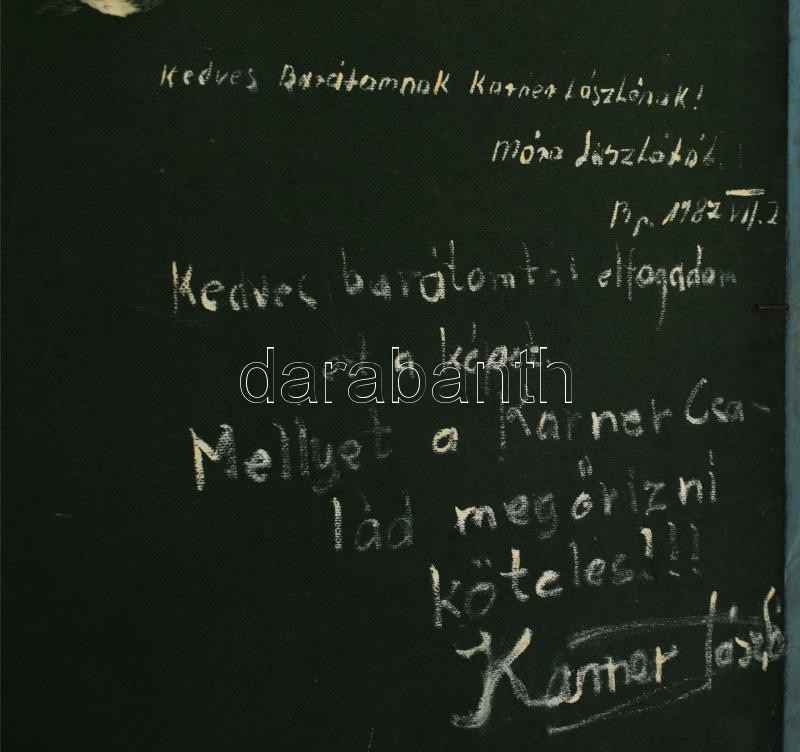 Kedves Barátamnak Karner Lászlónak!
Móra Lászlótól.
Bp. 1987 VII. 2
Kedves barátomtól elfogadom
ezt a képet.
darabanth
Mellyet a Karner Csa-
lád megőrizni
köteles!!!
Karner László